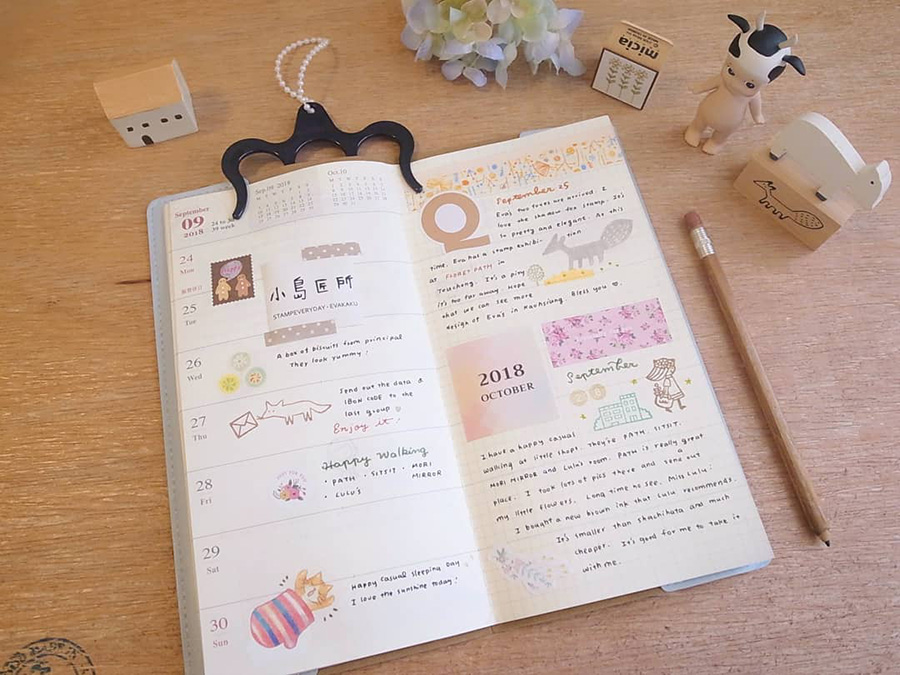 September
09
2018
24 to 30
39 week
Sep.09 2018
Oct.10
24
Mon
25
Tue
小島匠所
STAMPEVERYDAY · EVAKAKU
26
Wed
A box of biscuits from principal
They look yummy !
27
Thu
Send out the data &
iBON CODE to the
last group
Enjoy it !
28
Fri
Happy Walking
• PATH • SITSIT • MORI
MIRROR
• LULU'S
29
Sat
30
Sun
Happy casual sleeping Day
I love the sunshine today !
September 25
Eva's two foxes are arrived. I
love the shadow fox stamp. It's
so pretty and elegant. At this
time, Eva has a stamp exhibi-tion
at FLORET PATH in
Taichung. It's a pity
it's too far away. Hope
that we can see more
design of Eva's in Kaohsiung. Bless you ♡.
2018
OCTOBER
September
I have a happy casual
walking at little shop. They're PATH, SITSIT,
MORI MIRROR and Lulu's room. PATH is really great
place. I took lots of pics there and send out
my little flowers. Long time no see. Miss Lulu!
I bought a new brown ink that Lulu recommends.
It's smaller than shachihata and much
cheaper. It's good for me to take it
with me.
micia